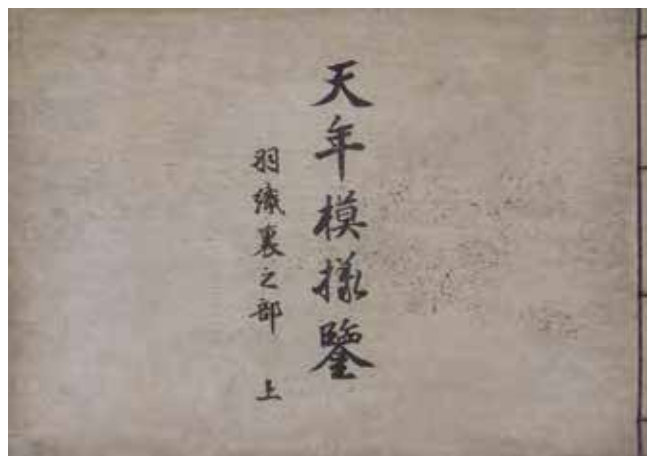 天年模様鑒
羽織裏之部 上